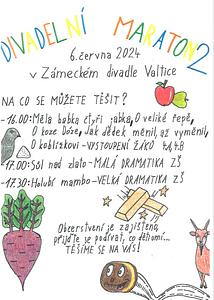 DIVADELNÍ MARATON 2
6. června 2024
v Zámeckém divadle Valtice
NA CO SE MŮŽETE TĚŠIT?
-16.00: Měla babka čtyři jabka, O veliké řepě,
O koze Róze, Jak dědek měnil, až vyměnil,
O koblížkovi - VYSTOUPENÍ ŽÁKŮ 4.A, 4.B
-17.00: Sůl nad zlato - MALÁ DRAMATIKA ZŠ
-17.30: Holubí mambo - VELKÁ DRAMATIKA ZŠ
Občerstvení je zajištěno,
přijďte se podívat, co děláme...
TĚŠÍME SE NA VÁS!